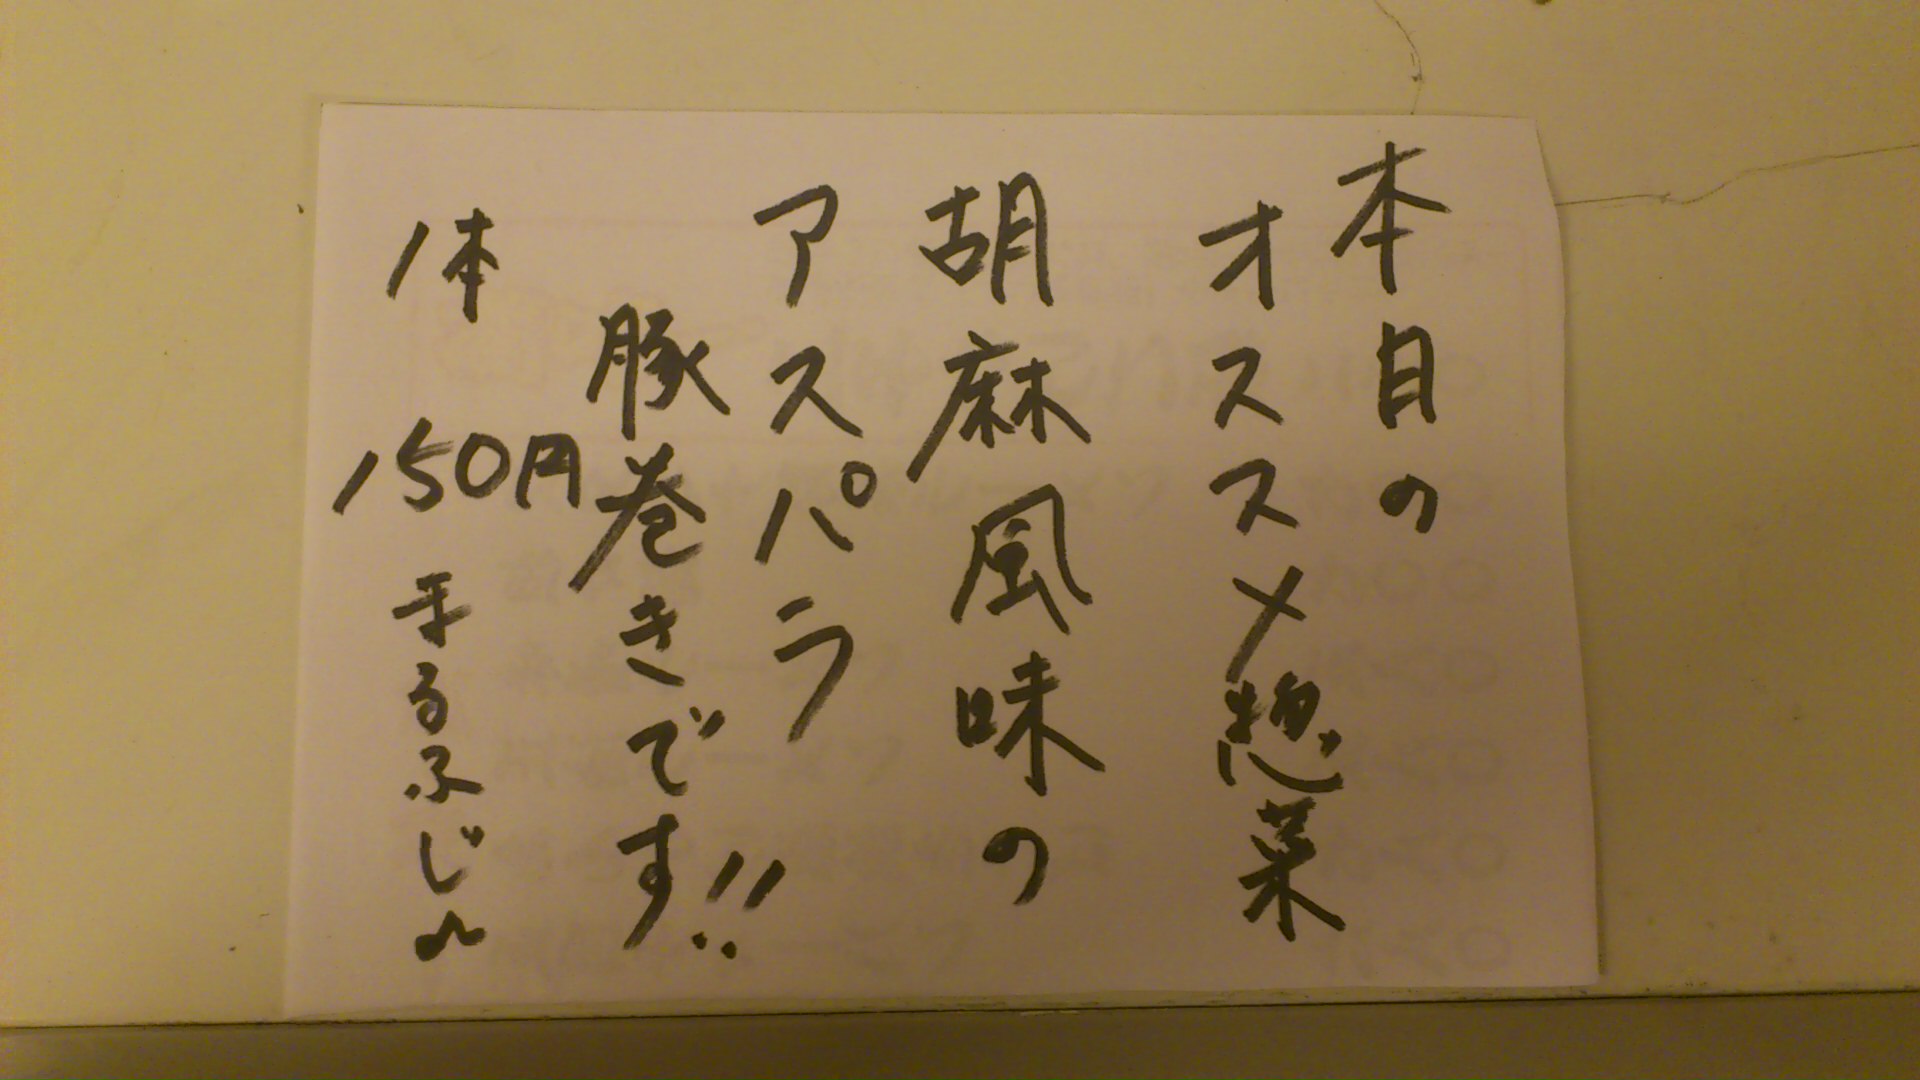 本日の
オススメ惣菜
胡麻風味の
アスパラ
豚巻きです!!
1本
150円
まるふじ